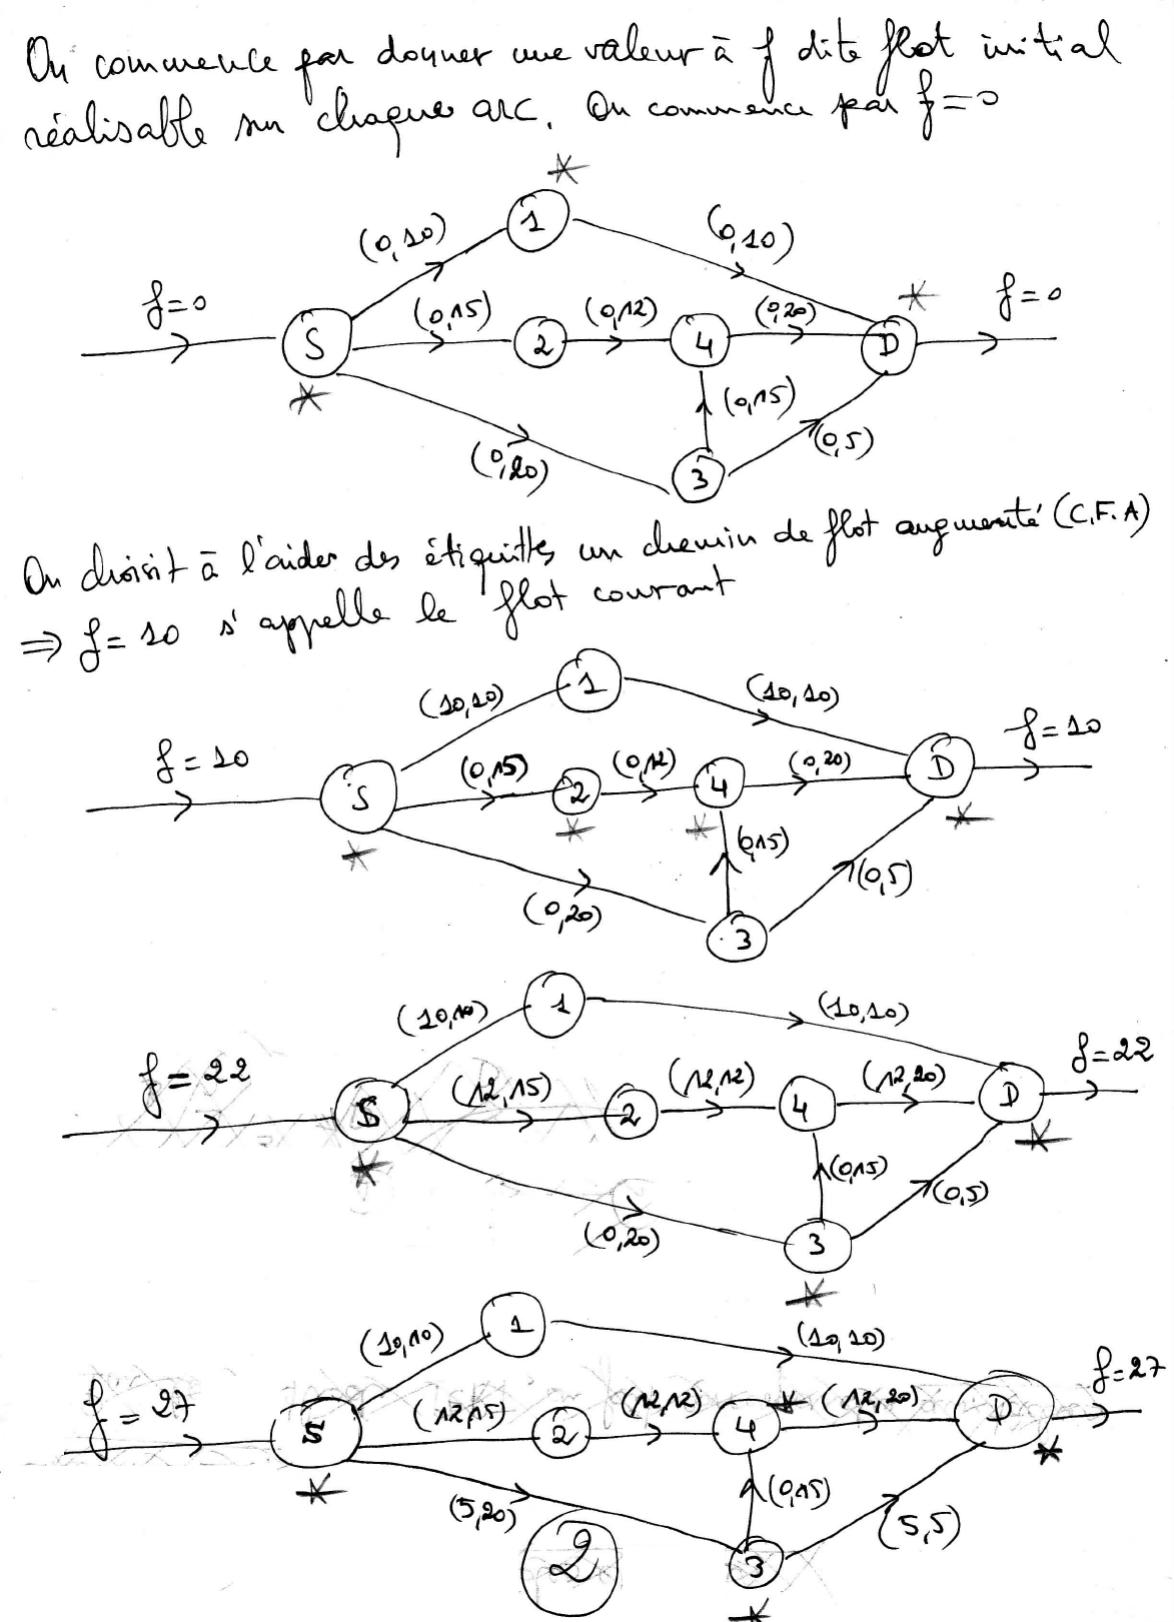 On commence par donner une valeur à f dite flot initial
réalisable sur chaque arc. On commence par f=0
*
1
(0,10)
(0,10)
f=0
(0,15)
(0,12)
(0,20)
*
f=0
S
2
4
D
*
(0,15)
(0,5)
(0,20)
3
On choisit à l'aider des étiquittes un chemin de flot augmenté (C.F.A)
⇒ f=10 s'appelle le flot courant
1
(10,10)
(10,10)
f=10
f=10
(0,15)
(0,12)
(0,20)
S
2
4
D
*
*
*
*
(0,15)
(0,5)
(0,20)
3
1
(10,10)
(10,10)
f=22
f=22
(12,15)
(12,12)
(12,20)
S
2
4
D
*
*
(0,15)
(0,5)
(0,20)
3
*
1
(10,10)
(10,10)
f=27
f=27
(12,15)
(12,12)
*
(12,20)
S
2
4
D
*
*
(0,15)
(5,20)
(5,5)
2
3
*